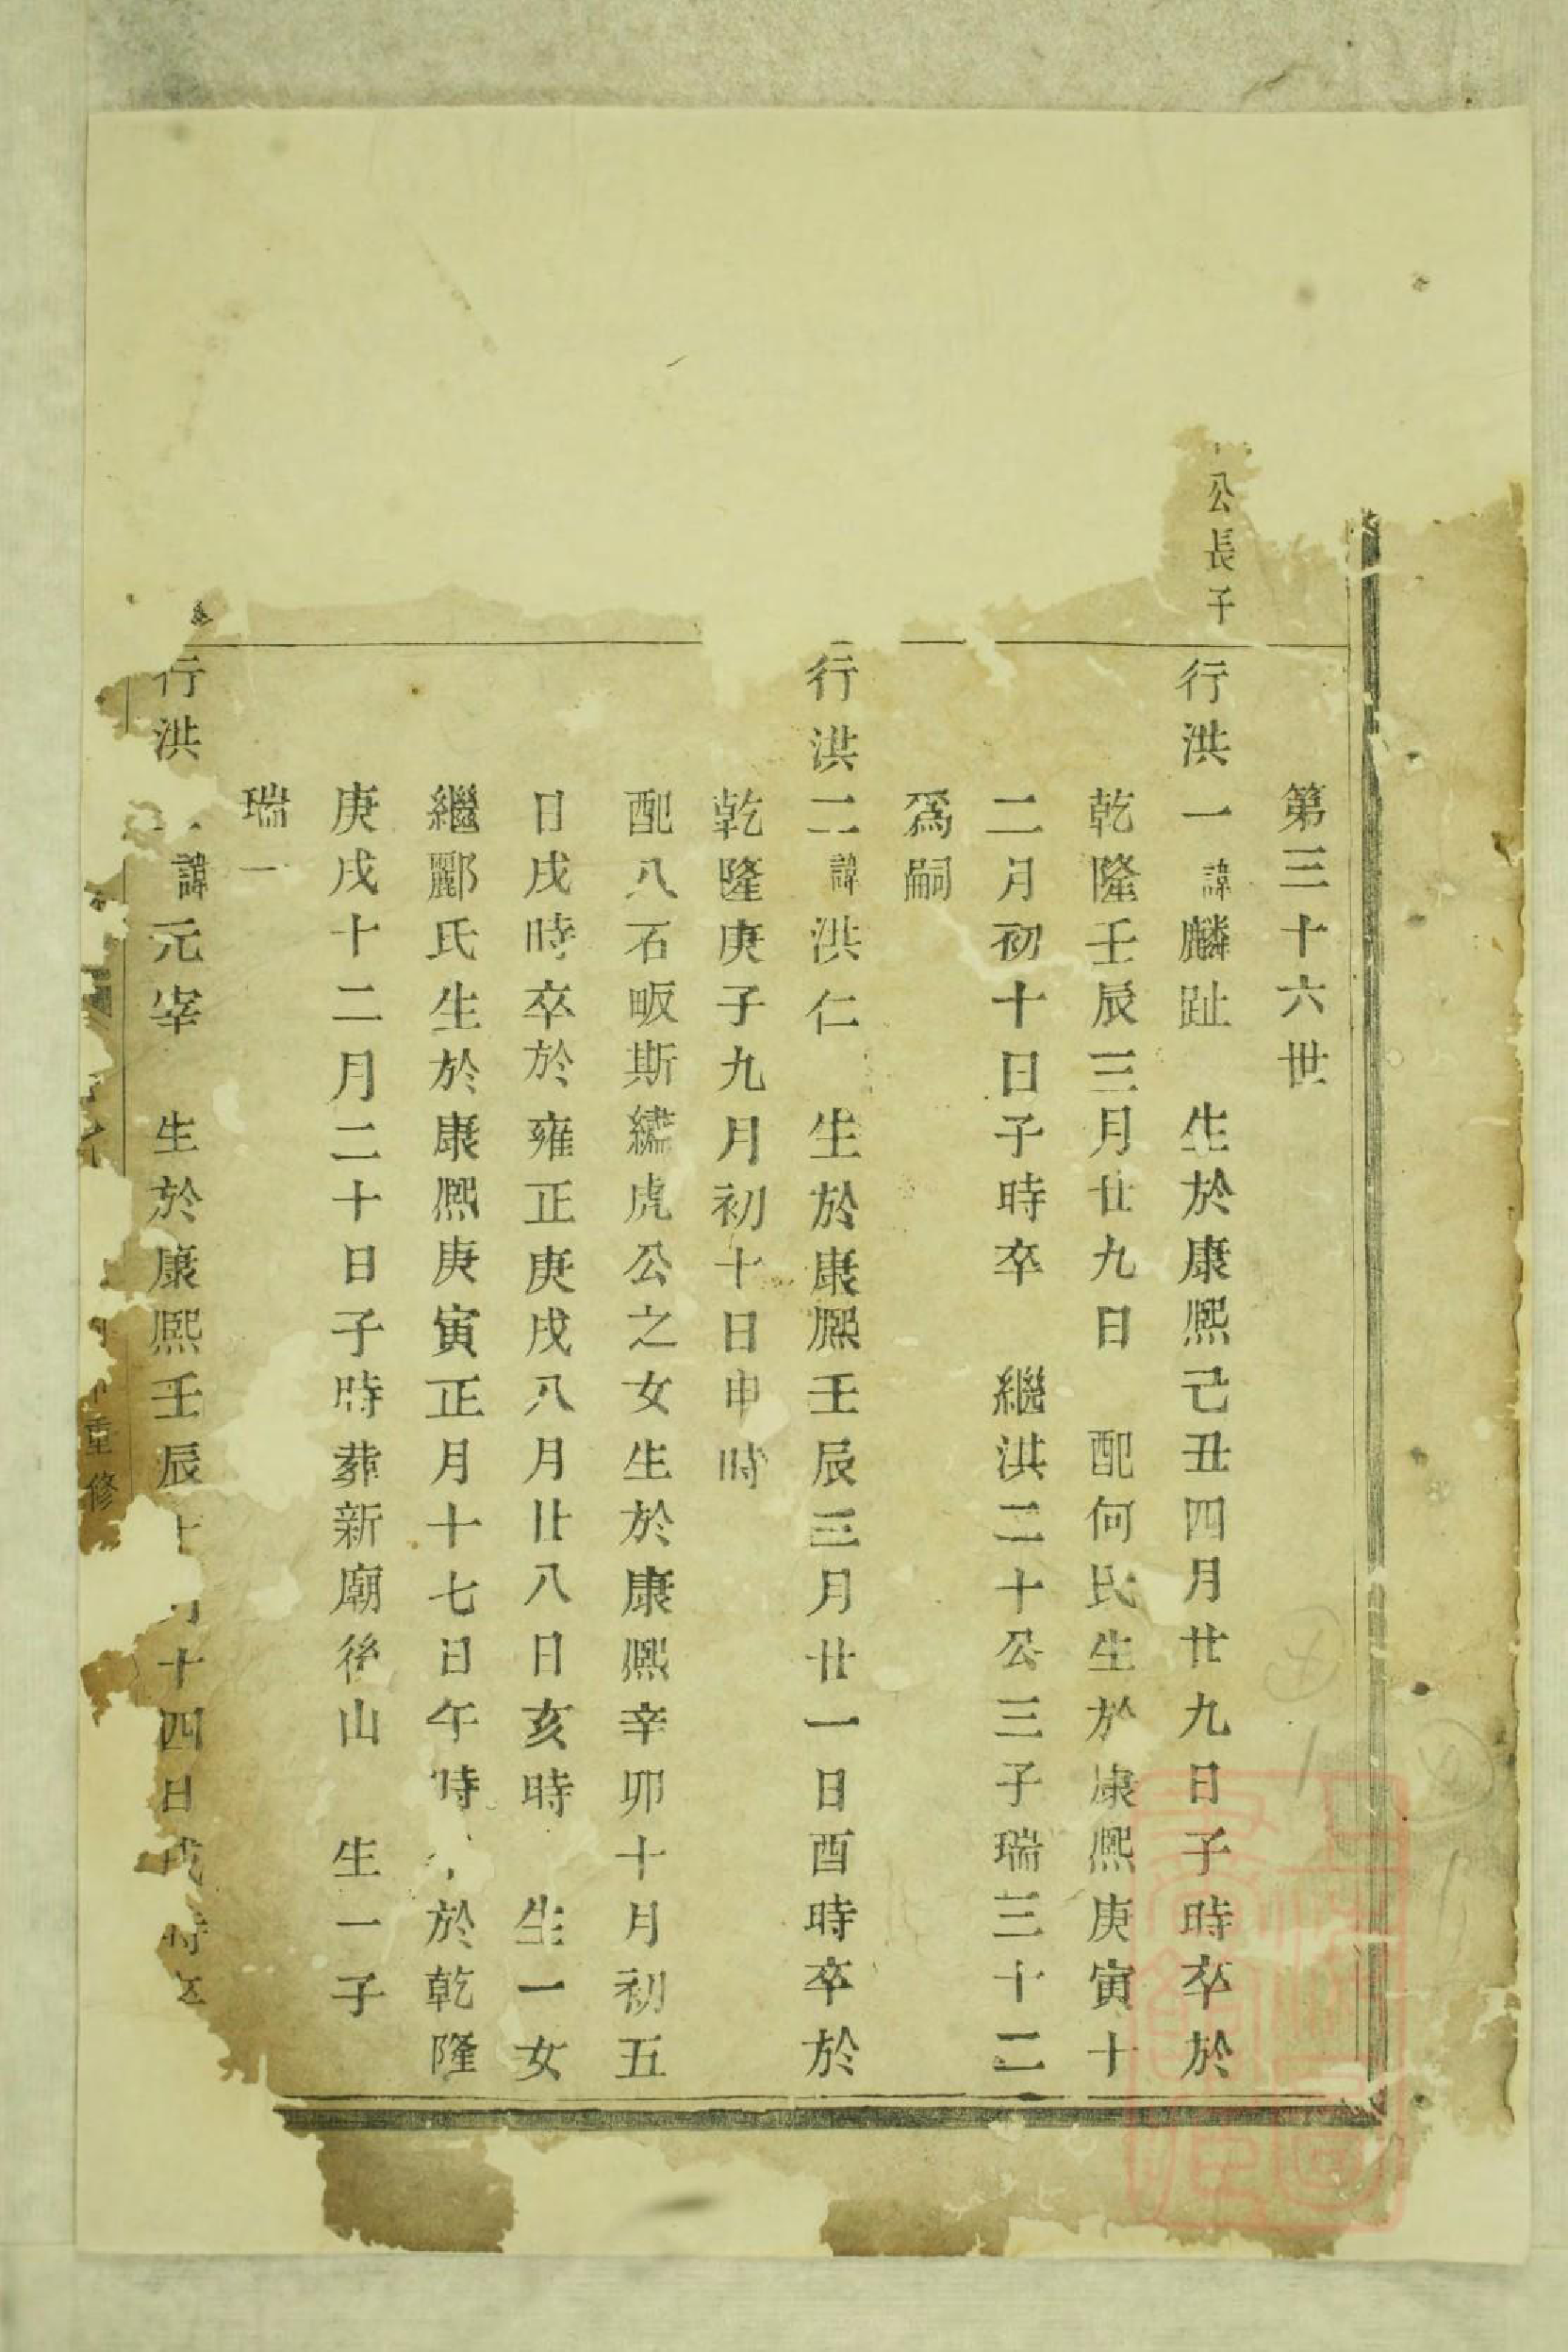 第三十六世
公長子
行洪一諱麟趾　生於康熙己丑四月廿九日子時卒於
乾隆壬辰三月廿九日　配何氏生於康熙庚寅十
二月初十日子時卒　繼洪二十公三子瑞三十二
爲嗣
行洪二諱洪仁　生於康熙壬辰三月廿一日酉時卒於
乾隆庚子九月初十日申時
配八石畈斯繡虎公之女生於康熙辛卯十月初五
日戌時卒於雍正庚戌八月廿八日亥時　生一女
繼酈氏生於康熙庚寅正月十七日午時　於乾隆
庚戌十二月二十日子時葬新廟後山　生一子
瑞一
行洪　諱元宰　生於康熙壬辰　月十四日戌時
重修